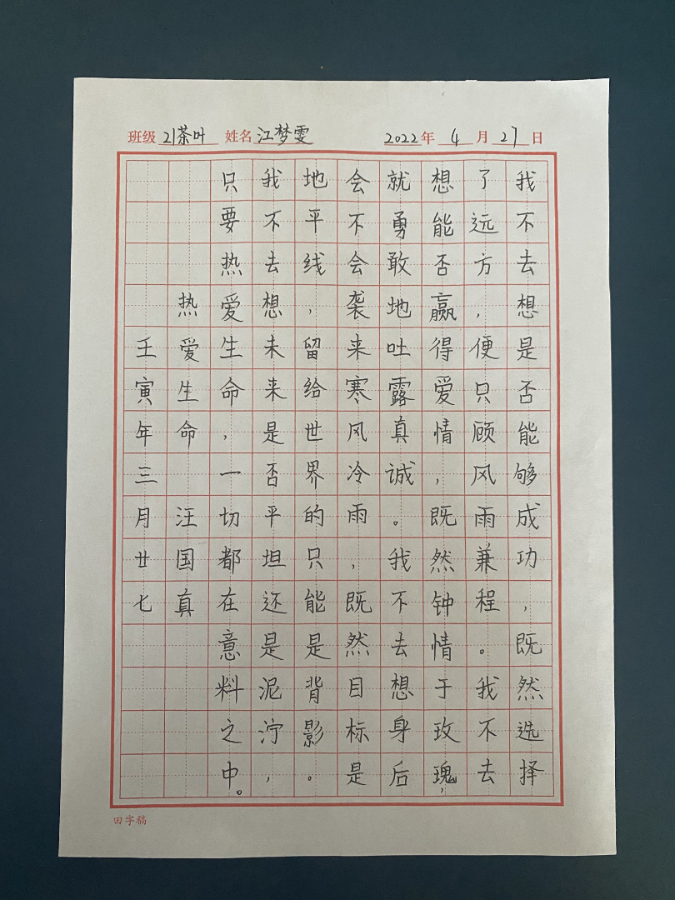 班级 21茶叶 姓名 江梦雯 2022年 4 月 27 日
我不去想是否能够成功，既然选择
了远方，便只顾风雨兼程。我不去
想能否赢得爱情，既然钟情于玫瑰，
就勇敢地吐露真诚。我不去想身后
会不会袭来寒风冷雨，既然目标是
地平线，留给世界的只能是背影。
我不去想未来是否平坦还是泥泞，
只要热爱生命，一切都在意料之中。
热爱生命 汪国真
壬寅年三月廿七
田字稿